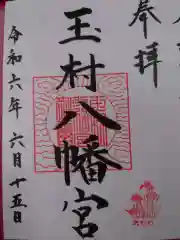 奉拝
玉村八幡宮
令和六年六月十五日